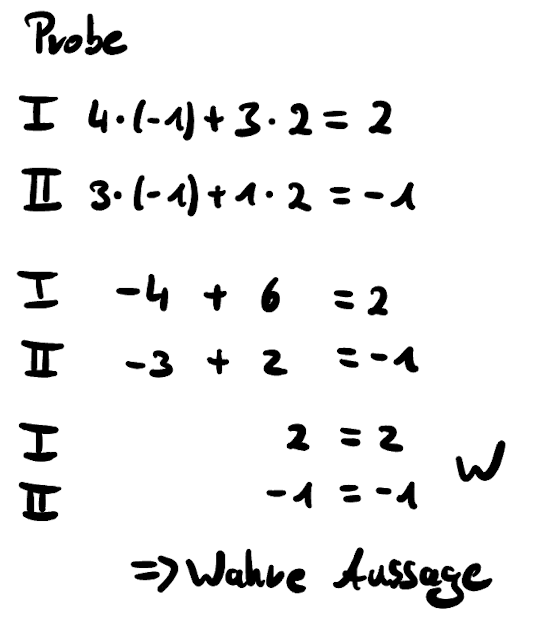 Probe
I 4·(-1) + 3·2 = 2
II 3·(-1) + 1·2 = -1
I -4 + 6 = 2
II -3 + 2 = -1
I 2 = 2
W
II -1 = -1
=> Wahre Aussage